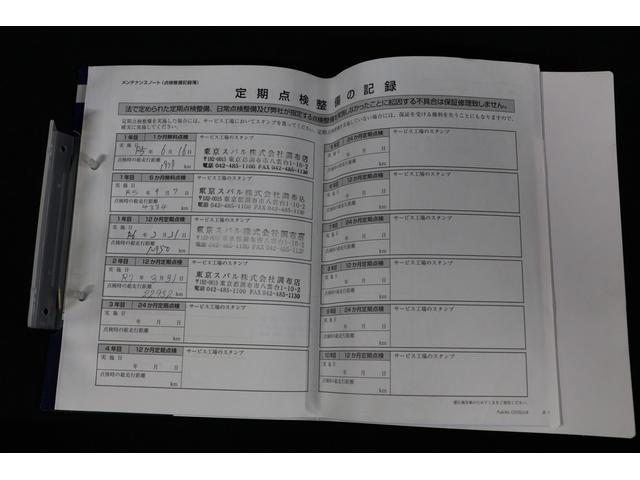 メンテナンスノート(点検整備記録簿)
定期点検整備の記録
法で定められた定期点検整備、日常点検整備及び弊社が指定する点検整備を実施しなかったことに起因する不具合は保証修理致しません。
1年目 1か月無料点検 サービス工場のスタンプ
実施日 R5年 6月16日
東京スバル株式会社調布店
〒182-0015 東京都調布市八雲台1-10-2
電話 042-485-1100 FAX 042-485-1130
点検時の総走行距離 km
1年目 6か月無料点検 サービス工場のスタンプ
実施日 R5年 9月 7日
東京スバル株式会社調布店
〒182-0015 東京都調布市八雲台1-10-2
電話 042-485-1100 FAX 042-485-1130
点検時の総走行距離 4234 km
1年目 12か月定期点検 サービス工場のスタンプ
実施日 R6年 3月31日
東京スバル株式会社調布店
〒182-0015 東京都調布市八雲台1-10-2
電話 042-485-1100 FAX 042-485-1130
点検時の総走行距離 km
2年目 12か月定期点検 サービス工場のスタンプ
実施日 R7年 3月31日
東京スバル株式会社調布店
〒182-0015 東京都調布市八雲台1-10-2
電話 042-485-1100 FAX 042-485-1130
点検時の総走行距離 22952 km
3年目 24か月定期点検 サービス工場のスタンプ
実施日 年 月 日
点検時の総走行距離 km
4年目 12か月定期点検 サービス工場のスタンプ
実施日 年 月 日
点検時の総走行距離 km
5年目 24か月定期点検 サービス工場のスタンプ
実施日 年 月 日
点検時の総走行距離 km
6年目 12か月定期点検 サービス工場のスタンプ
実施日 年 月 日
点検時の総走行距離 km
7年目 24か月定期点検 サービス工場のスタンプ
実施日 年 月 日
点検時の総走行距離 km
8年目 12か月定期点検 サービス工場のスタンプ
実施日 年 月 日
点検時の総走行距離 km
9年目 24か月定期点検 サービス工場のスタンプ
実施日 年 月 日
点検時の総走行距離 km
10年目 12か月定期点検 サービス工場のスタンプ
実施日 年 月 日
点検時の総走行距離 km